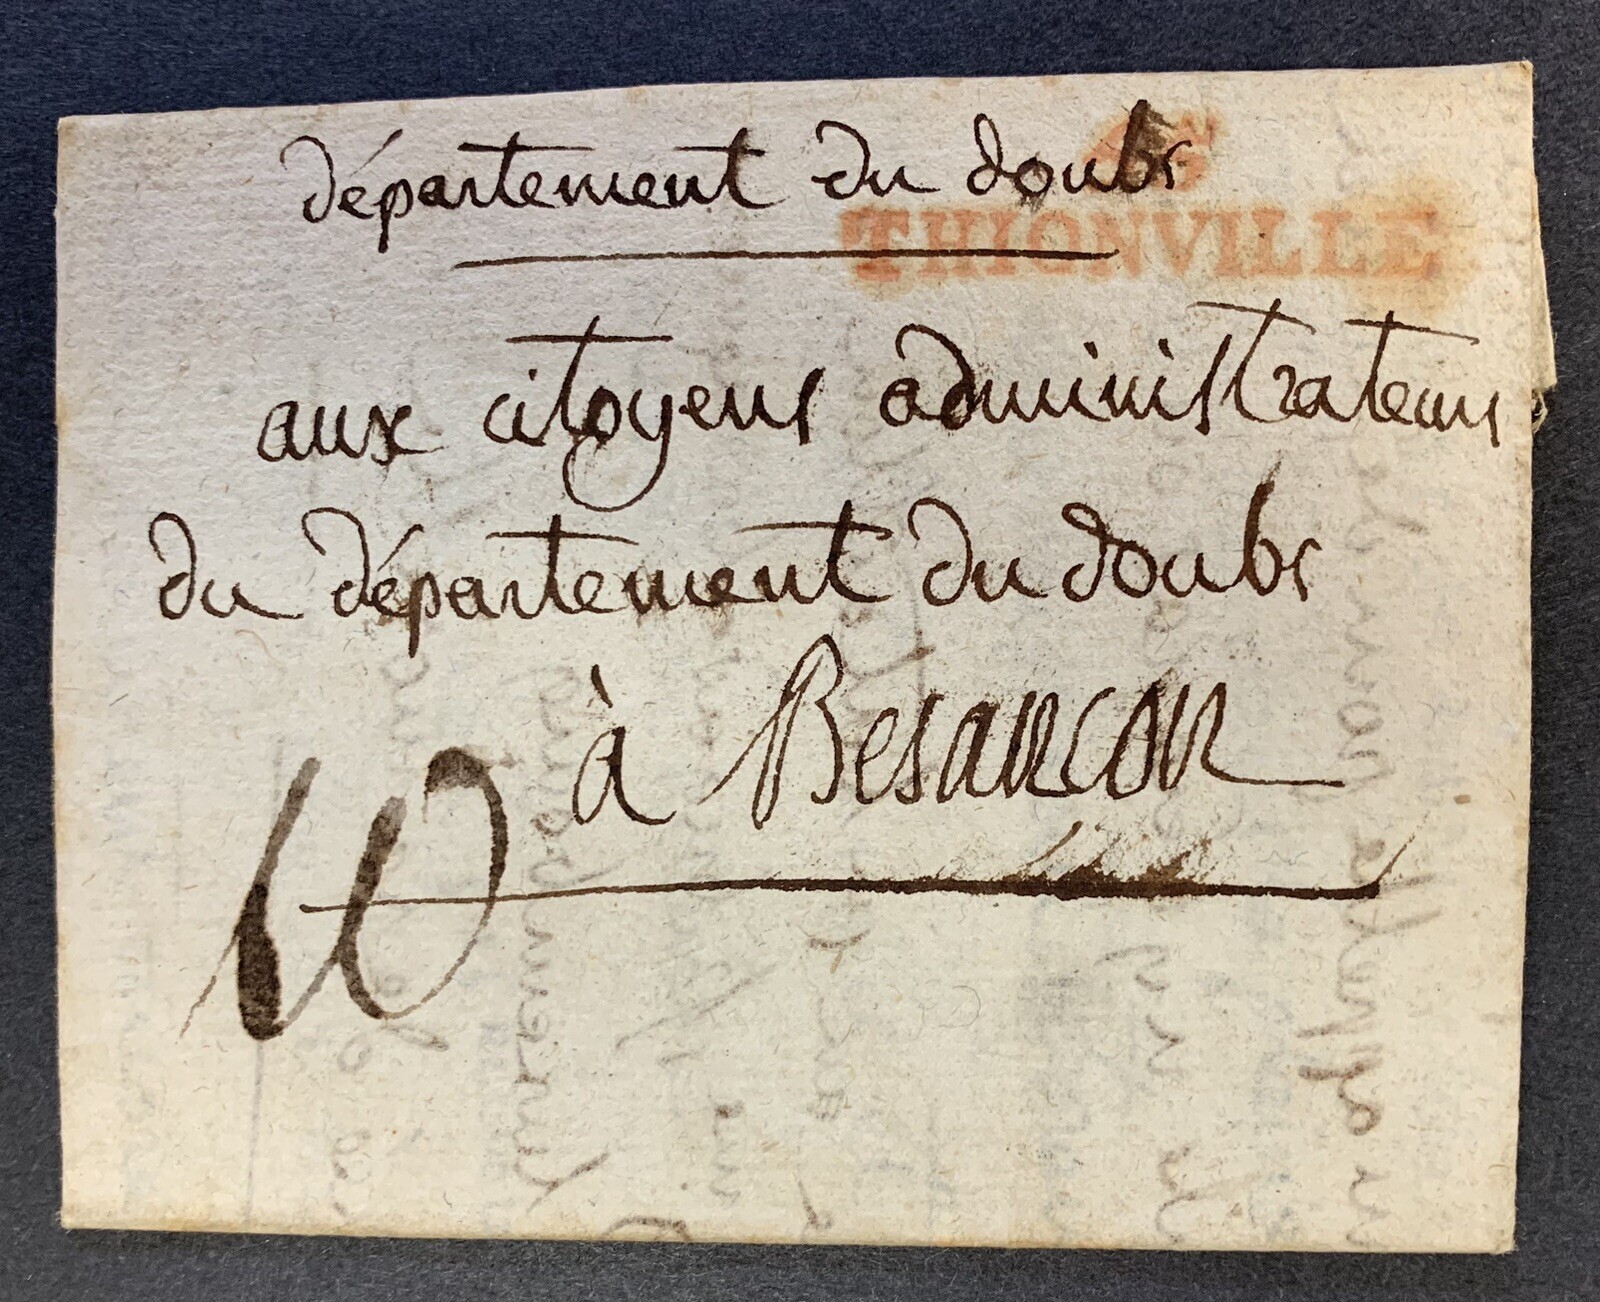 département du doubs
THIONVILLE
aux citoyens administrateurs
du département du doubs
à Besancon
10